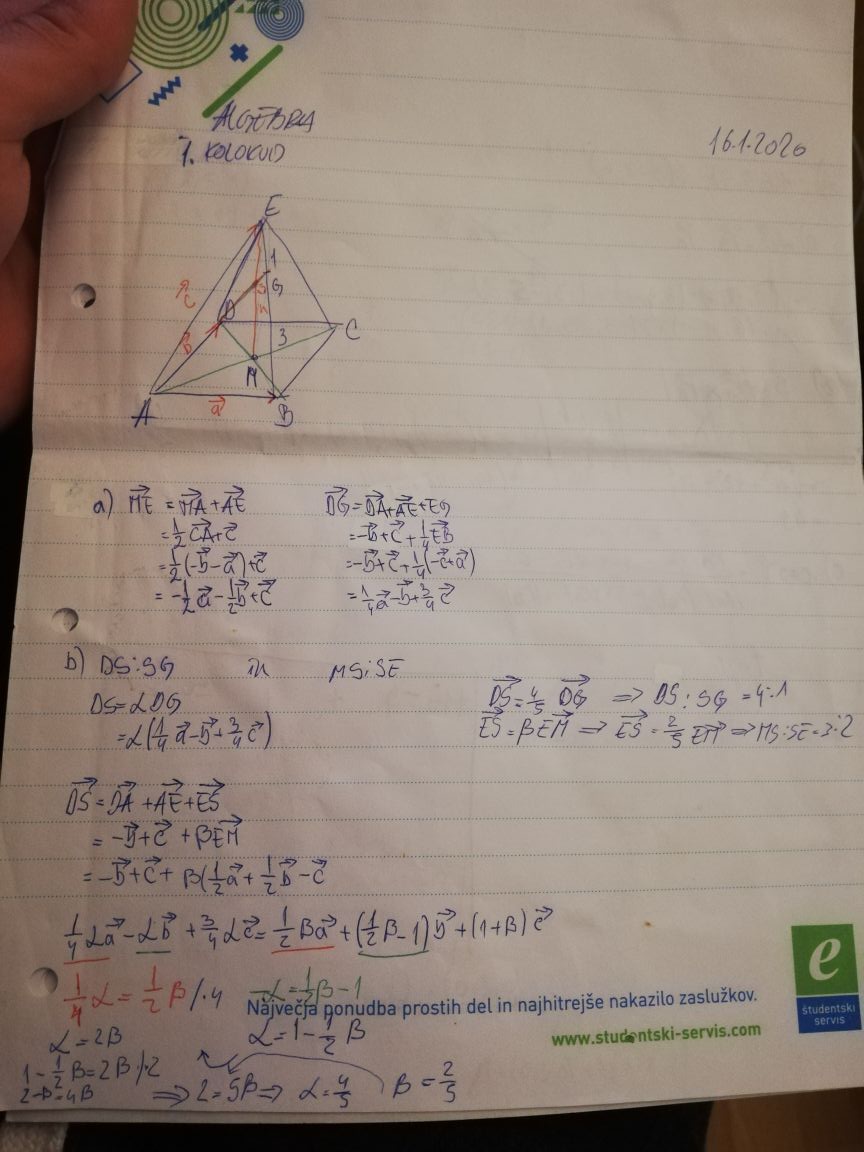 ALGEBRA
1. KOLOKVIJ
16.1.2020
E
1
G
S
c⃗
D
b⃗
3
C
M
A
a⃗
B
a) ME⃗ = MA⃗ + AE⃗
= 1/2 CA⃗ + c⃗
= 1/2 (-b⃗ - a⃗) + c⃗
= -1/2 a⃗ - 1/2 b⃗ + c⃗
DG⃗ = DA⃗ + AE⃗ + EG
= -b⃗ + c⃗ + 1/4 EB⃗
= -b⃗ + c⃗ + 1/4 (-c⃗ + a⃗)
= 1/4 a⃗ - b⃗ + 3/4 c⃗
b) DS:SG in MS:SE
DS = α DG
= α (1/4 a⃗ - b⃗ + 3/4 c⃗)
DS⃗ = 4/5 DG⃗ ⇒ DS:SG = 4:1
ES⃗ = β EM⃗ ⇒ ES⃗ = 2/5 EM⃗ ⇒ MS:SE = 3:2
DS⃗ = DA⃗ + AE⃗ + ES⃗
= -b⃗ + c⃗ + β EM⃗
= -b⃗ + c⃗ + β (1/2 a⃗ + 1/2 b⃗ - c⃗
1/4 α a⃗ - α b⃗ + 3/4 α c⃗ = 1/2 β a⃗ + (1/2 β - 1) b⃗ + (1 + β) c⃗
1/4 α = 1/2 β /·4
-α = 1/2 β - 1
α = 2β
α = 1 - 1/2 β
1 - 1/2 β = 2β /·2
2 - β = 4β
⇒ 2 = 5β ⇒ α = 4/5
β = 2/5
Največja ponudba prostih del in najhitrejše nakazilo zaslužkov.
www.studentski-servis.com
e
študentski
servis